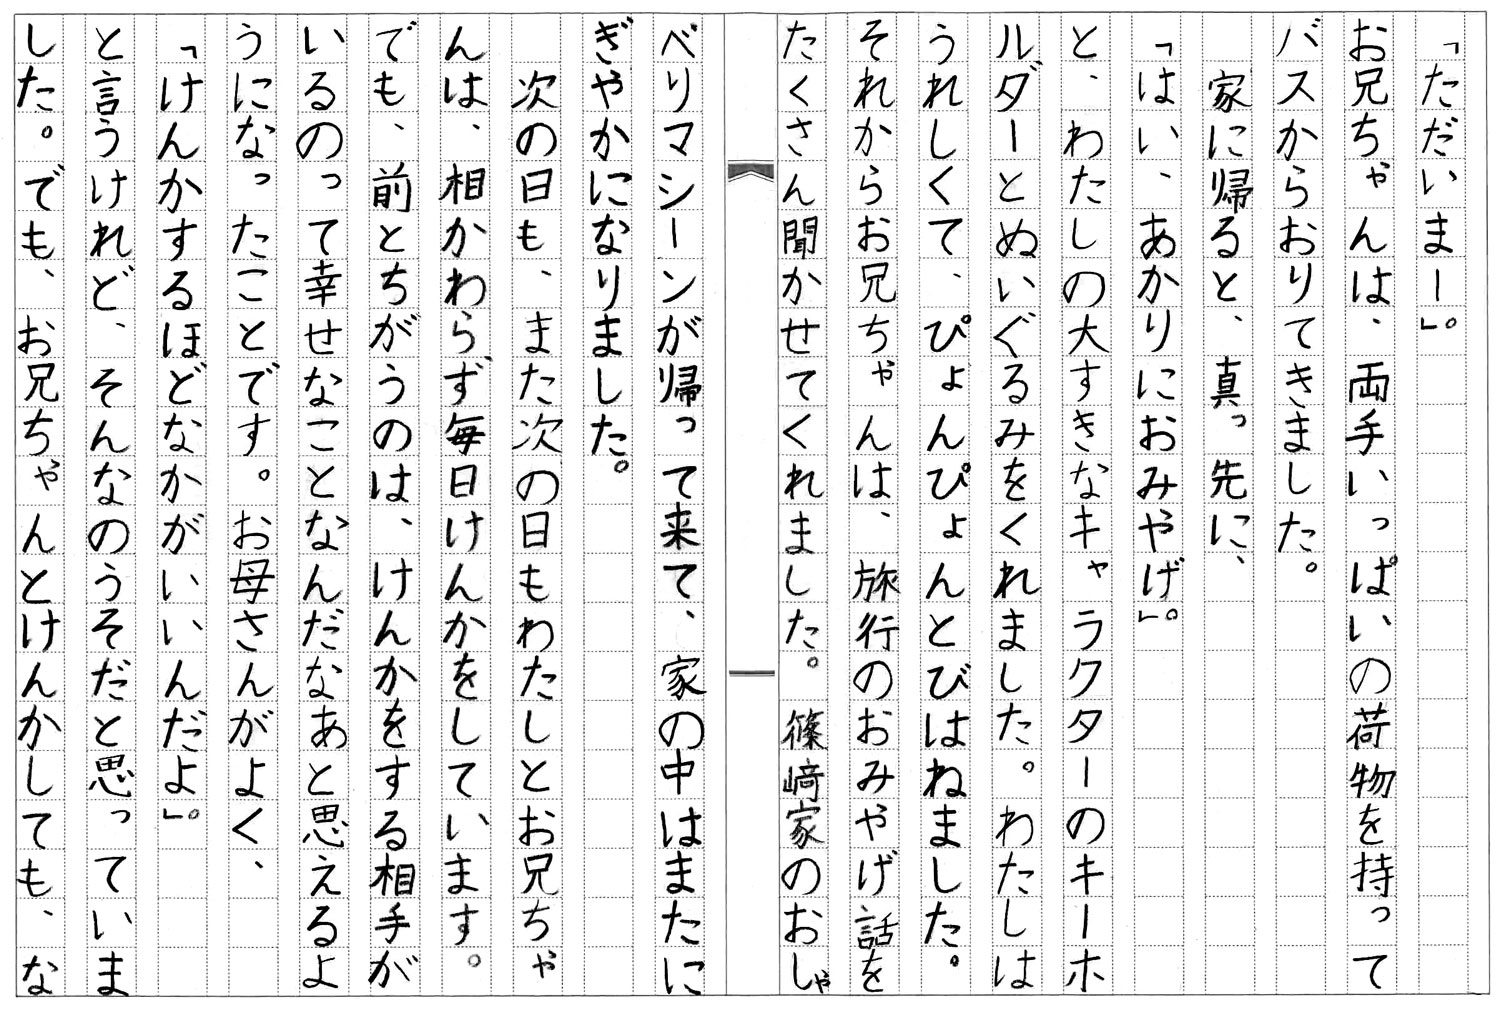 「ただいまー」。
お兄ちゃんは、両手いっぱいの荷物を持って
バスからおりてきました。
家に帰ると、真っ先に、
「はい、あかりにおみやげ」。
と、わたしの大すきなキャラクターのキーホ
ルダーとぬいぐるみをくれました。わたしは
うれしくて、ぴょんぴょんとびはねました。
それからお兄ちゃんは、旅行のおみやげ話を
たくさん聞かせてくれました。篠﨑家のおしゃ
べりマシーンが帰って来て、家の中はまたに
ぎやかになりました。
次の日も、また次の日もわたしとお兄ちゃ
んは、相かわらず毎日けんかをしています。
でも、前とちがうのは、けんかをする相手が
いるのって幸せなことなんだなあと思えるよ
うになったことです。お母さんがよく、
「けんかするほどなかがいいんだよ」。
と言うけれど、そんなのうそだと思っていま
した。でも、お兄ちゃんとけんかしても、な